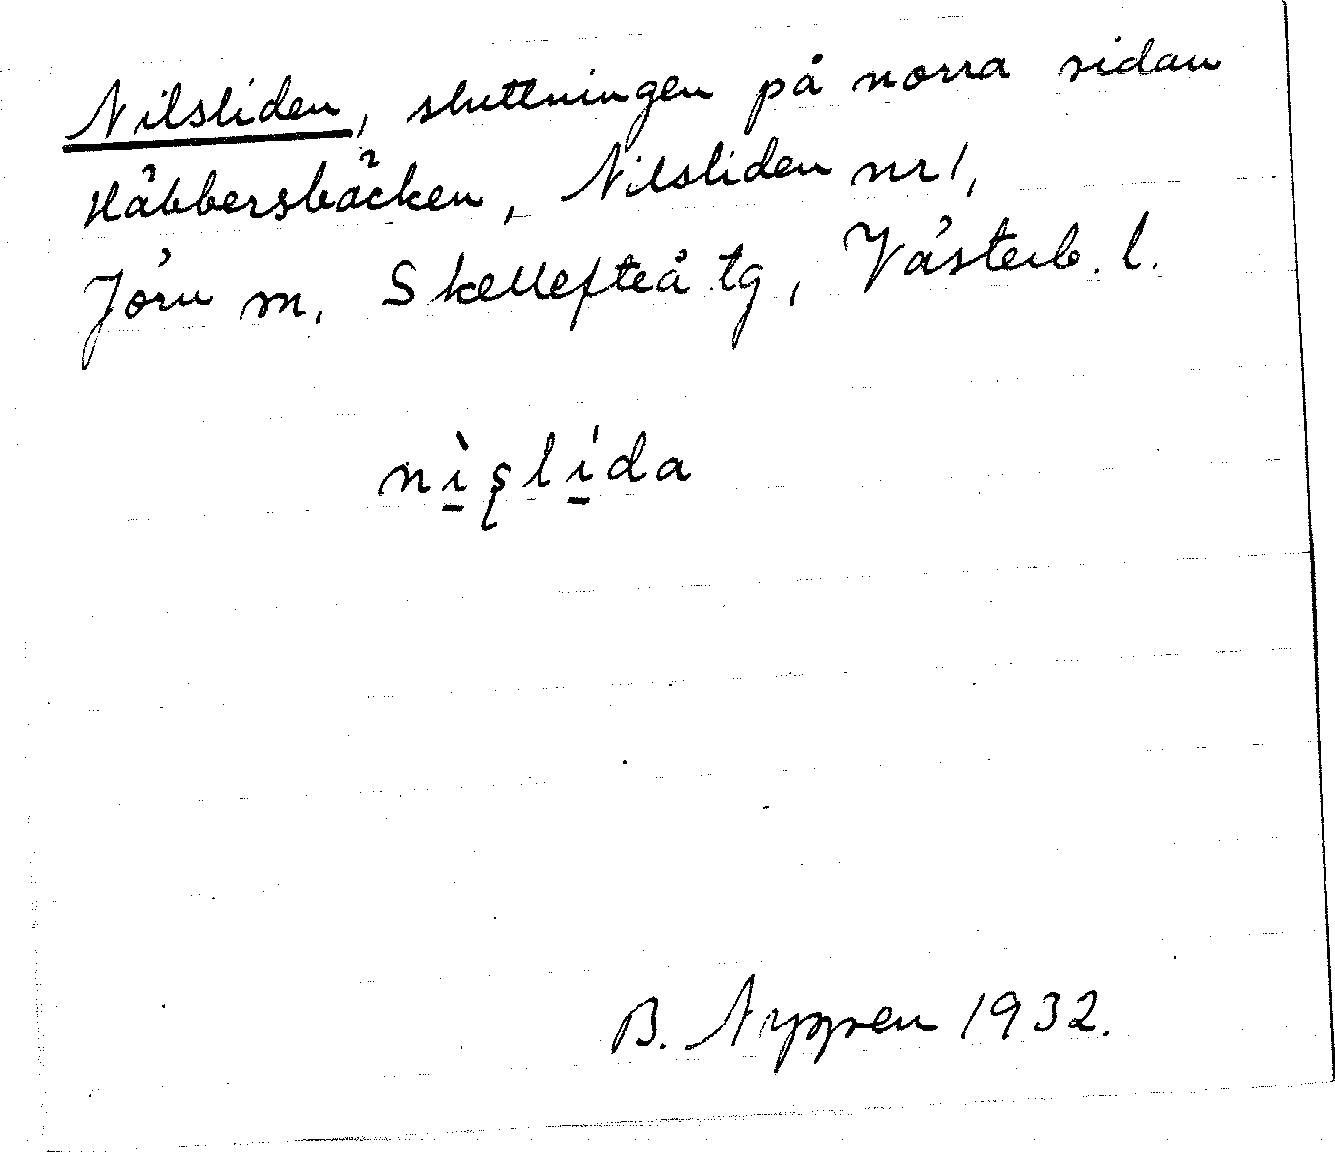 Nilsliden, sluttningen på norra sidan
Håbbersbäcken, Nilsliden nr 1,
Jörn sn, Skellefteå tg, Västerb. l.
nı̱̀ʂlı̱́da
B. Nyppen 1932.